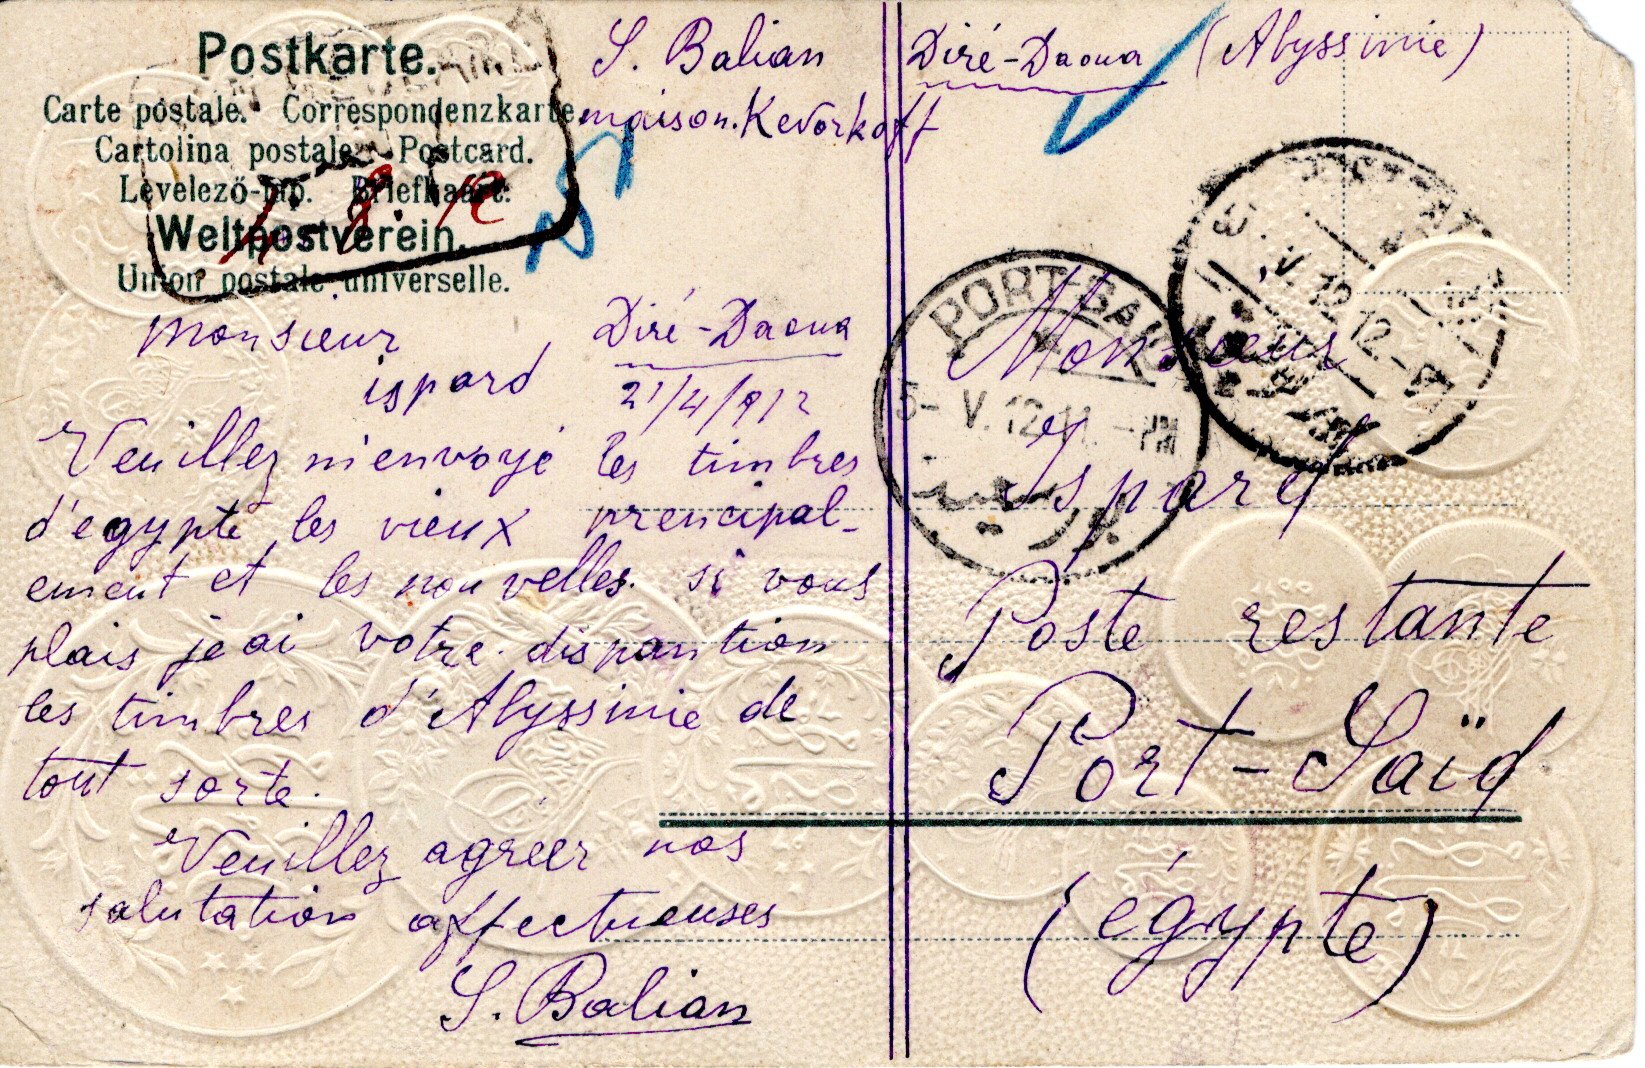 Postkarte.
Carte postale. Correspondenzkarte
Cartolina postale. Postcard.
Levelező-lap. Briefkaart.
Weltpostverein.
Union postale universelle.
S. Balian
maison. Kevorkoff
Diré-Daoua (Abyssinie)
Monsieur
ispard
Diré-Daoua
21/4/912
Veuillez m'envoyé les timbres
d'egypte les vieux prencipal-
ement et les nouvelles. si vous
plais je ai votre. dispantion
les timbres d'Abyssinie de
tout sorte.
Veuillez agréer nos
salutation affectueuses
S. Balian
PORT-SAID
5- V. 12 - PM
بورسعيد
V. 12
Monsieur
Ispard
Poste restante
Port-Saïd
(égypte)